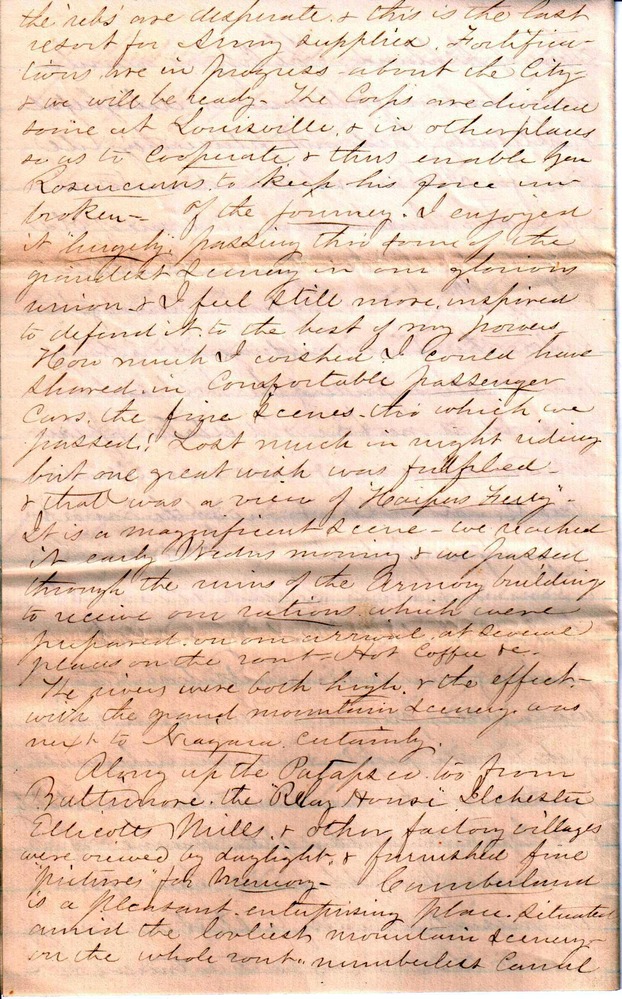 the 'rebs' are desperate & this is the last
resort for Army supplies. Fortifica-
tions are in progress - about the City -
& we will be ready - The Corps are divided
some at Louisville, & in other places
so as to Cooperate, & thus enable Gen
Rosencrans, to keep his force un-
broken - Of the journey. I enjoyed
it "hugely," passing thro some of the
grandest Scenery in our glorious
union, & I feel still more inspired
to defend it. to the best of my powers
How much I wished I could have
shared in Comfortable passenger
Cars. the fine Scenes. thro which we
passed! Lost much in night riding
but one great wish was fulfilled -
& that was a view of "Harpers Ferry" -
It is a magnificent scene - we reached
it early Wedns morning & we passed
through the ruins of the Armory buildings
to receive our rations which were
prepared. on our arrival. at several
places on the rout - Hot Coffee &c -
The rivers were both high, & the effect -
with the grand mountain Scenery was
next to Niagara. certainly.
Along up the Patapsco. too from
Baltimore. the "Relay House" Ilchester
Ellicotts Mills, & other, factory villages
were viewed by daylight, & furnished fine
"pictures" for memory - Cumberland
is a pleasant. enterprising place. situated
amid the loveliest mountain scenery -
on the whole rout. numberless Canal